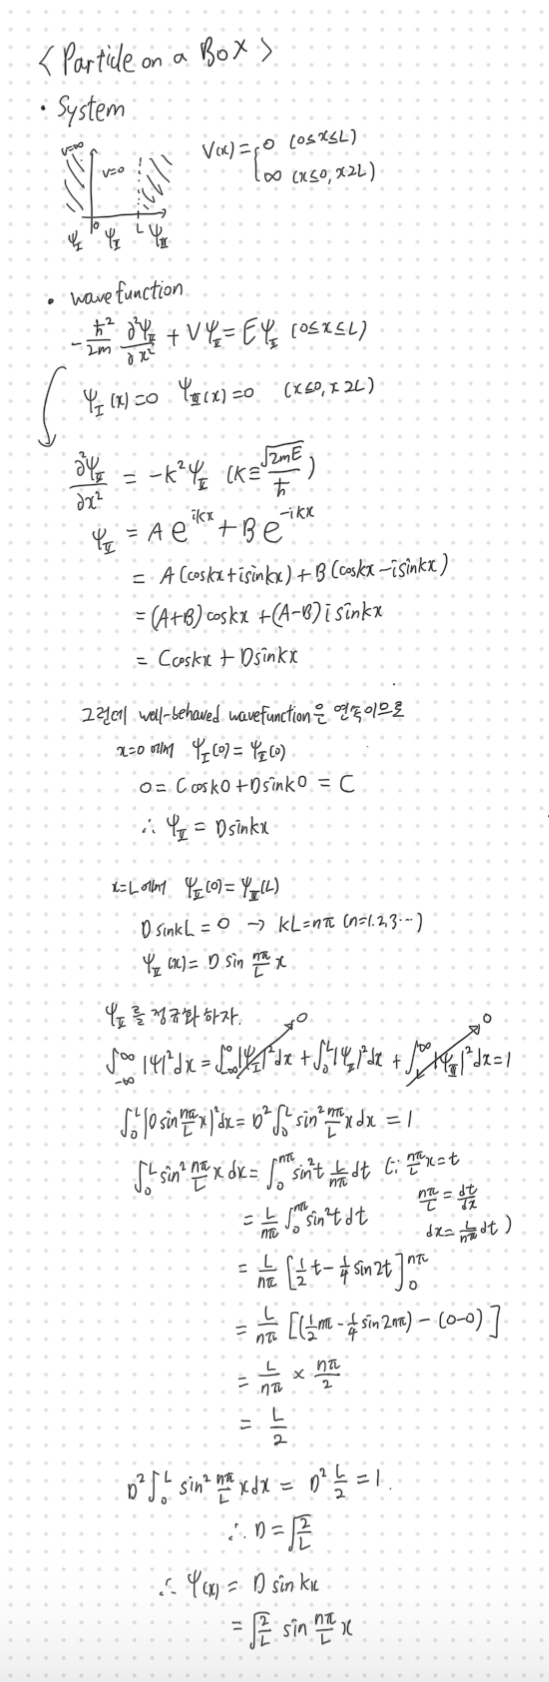 < Particle on a Box >
• System
V=∞ V=0
V(x) = { 0 (0≤x≤L)
∞ (x≤0, x≥L)
0 L
Ψ_I Ψ_II Ψ_III
• wavefunction
-ℏ²/2m ∂²Ψ_II/∂x² + VΨ_II = EΨ_II (0≤x≤L)
Ψ_I(x)=0 Ψ_III(x)=0 (x≤0, x≥L)
∂²Ψ_II/∂x² = -k²Ψ_II (k≡√2mE/ℏ)
Ψ_II = Ae^ikx + Be^-ikx
= A(coskx+isinkx) + B(coskx-isinkx)
= (A+B)coskx + (A-B)isinkx
= Ccoskx + Dsinkx
그런데 well-behaved wavefunction은 연속이므로
x=0에서 Ψ_I(0) = Ψ_II(0)
0 = Ccosk0 + Dsink0 = C
∴ Ψ_II = Dsinkx
x=L에서 Ψ_II(0) = Ψ_III(L)
DsinkL = 0 → kL=nπ (n=1,2,3···)
Ψ_II(x) = D sin nπ/L x
Ψ_II를 정규화하자.
0 0
∫_-∞^∞ |Ψ|²dx = ∫_-∞^0 |Ψ_I|²dx + ∫_0^L |Ψ_II|²dx + ∫_L^∞ |Ψ_III|²dx = 1
∫_0^L |Dsin nπ/L x|²dx = D² ∫_0^L sin² nπ/L x dx = 1
∫_0^L sin² nπ/L x dx = ∫_0^nπ sin²t L/nπ dt (∵ nπ/L x = t
nπ/L = dt/dx
= L/nπ ∫_0^nπ sin²t dt
dx = L/nπ dt)
= L/nπ [1/2 t - 1/4 sin2t]_0^nπ
= L/nπ [(1/2 nπ - 1/4 sin2nπ) - (0-0)]
= L/nπ × nπ/2
= L/2
D² ∫_0^L sin² nπ/L x dx = D² L/2 = 1.
∴ D = √2/L
∴ Ψ(x) = D sinkx
= √2/L sin nπ/L x